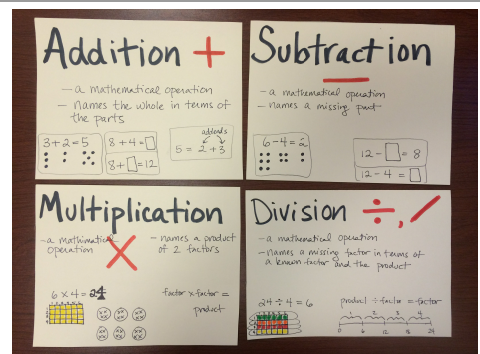 Addition +
- a mathematical operation
- names the whole in terms of
the parts
3+2=5
8+4=□
8+□=12
addends
5 = 2+3
Subtraction
—
- a mathematical operation
- names a missing part
6-4=2
12-□=8
12-4=□
Multiplication
×
- a mathimatical
operation
- names a product
of 2 factors
6×4=24
factor x factor =
product
Division ÷, /
- a mathematical operation
- names a missing factor in terms of
a known factor and the product
24÷4=6
product ÷ factor = factor
1 2 3 4
0 6 12 18 24